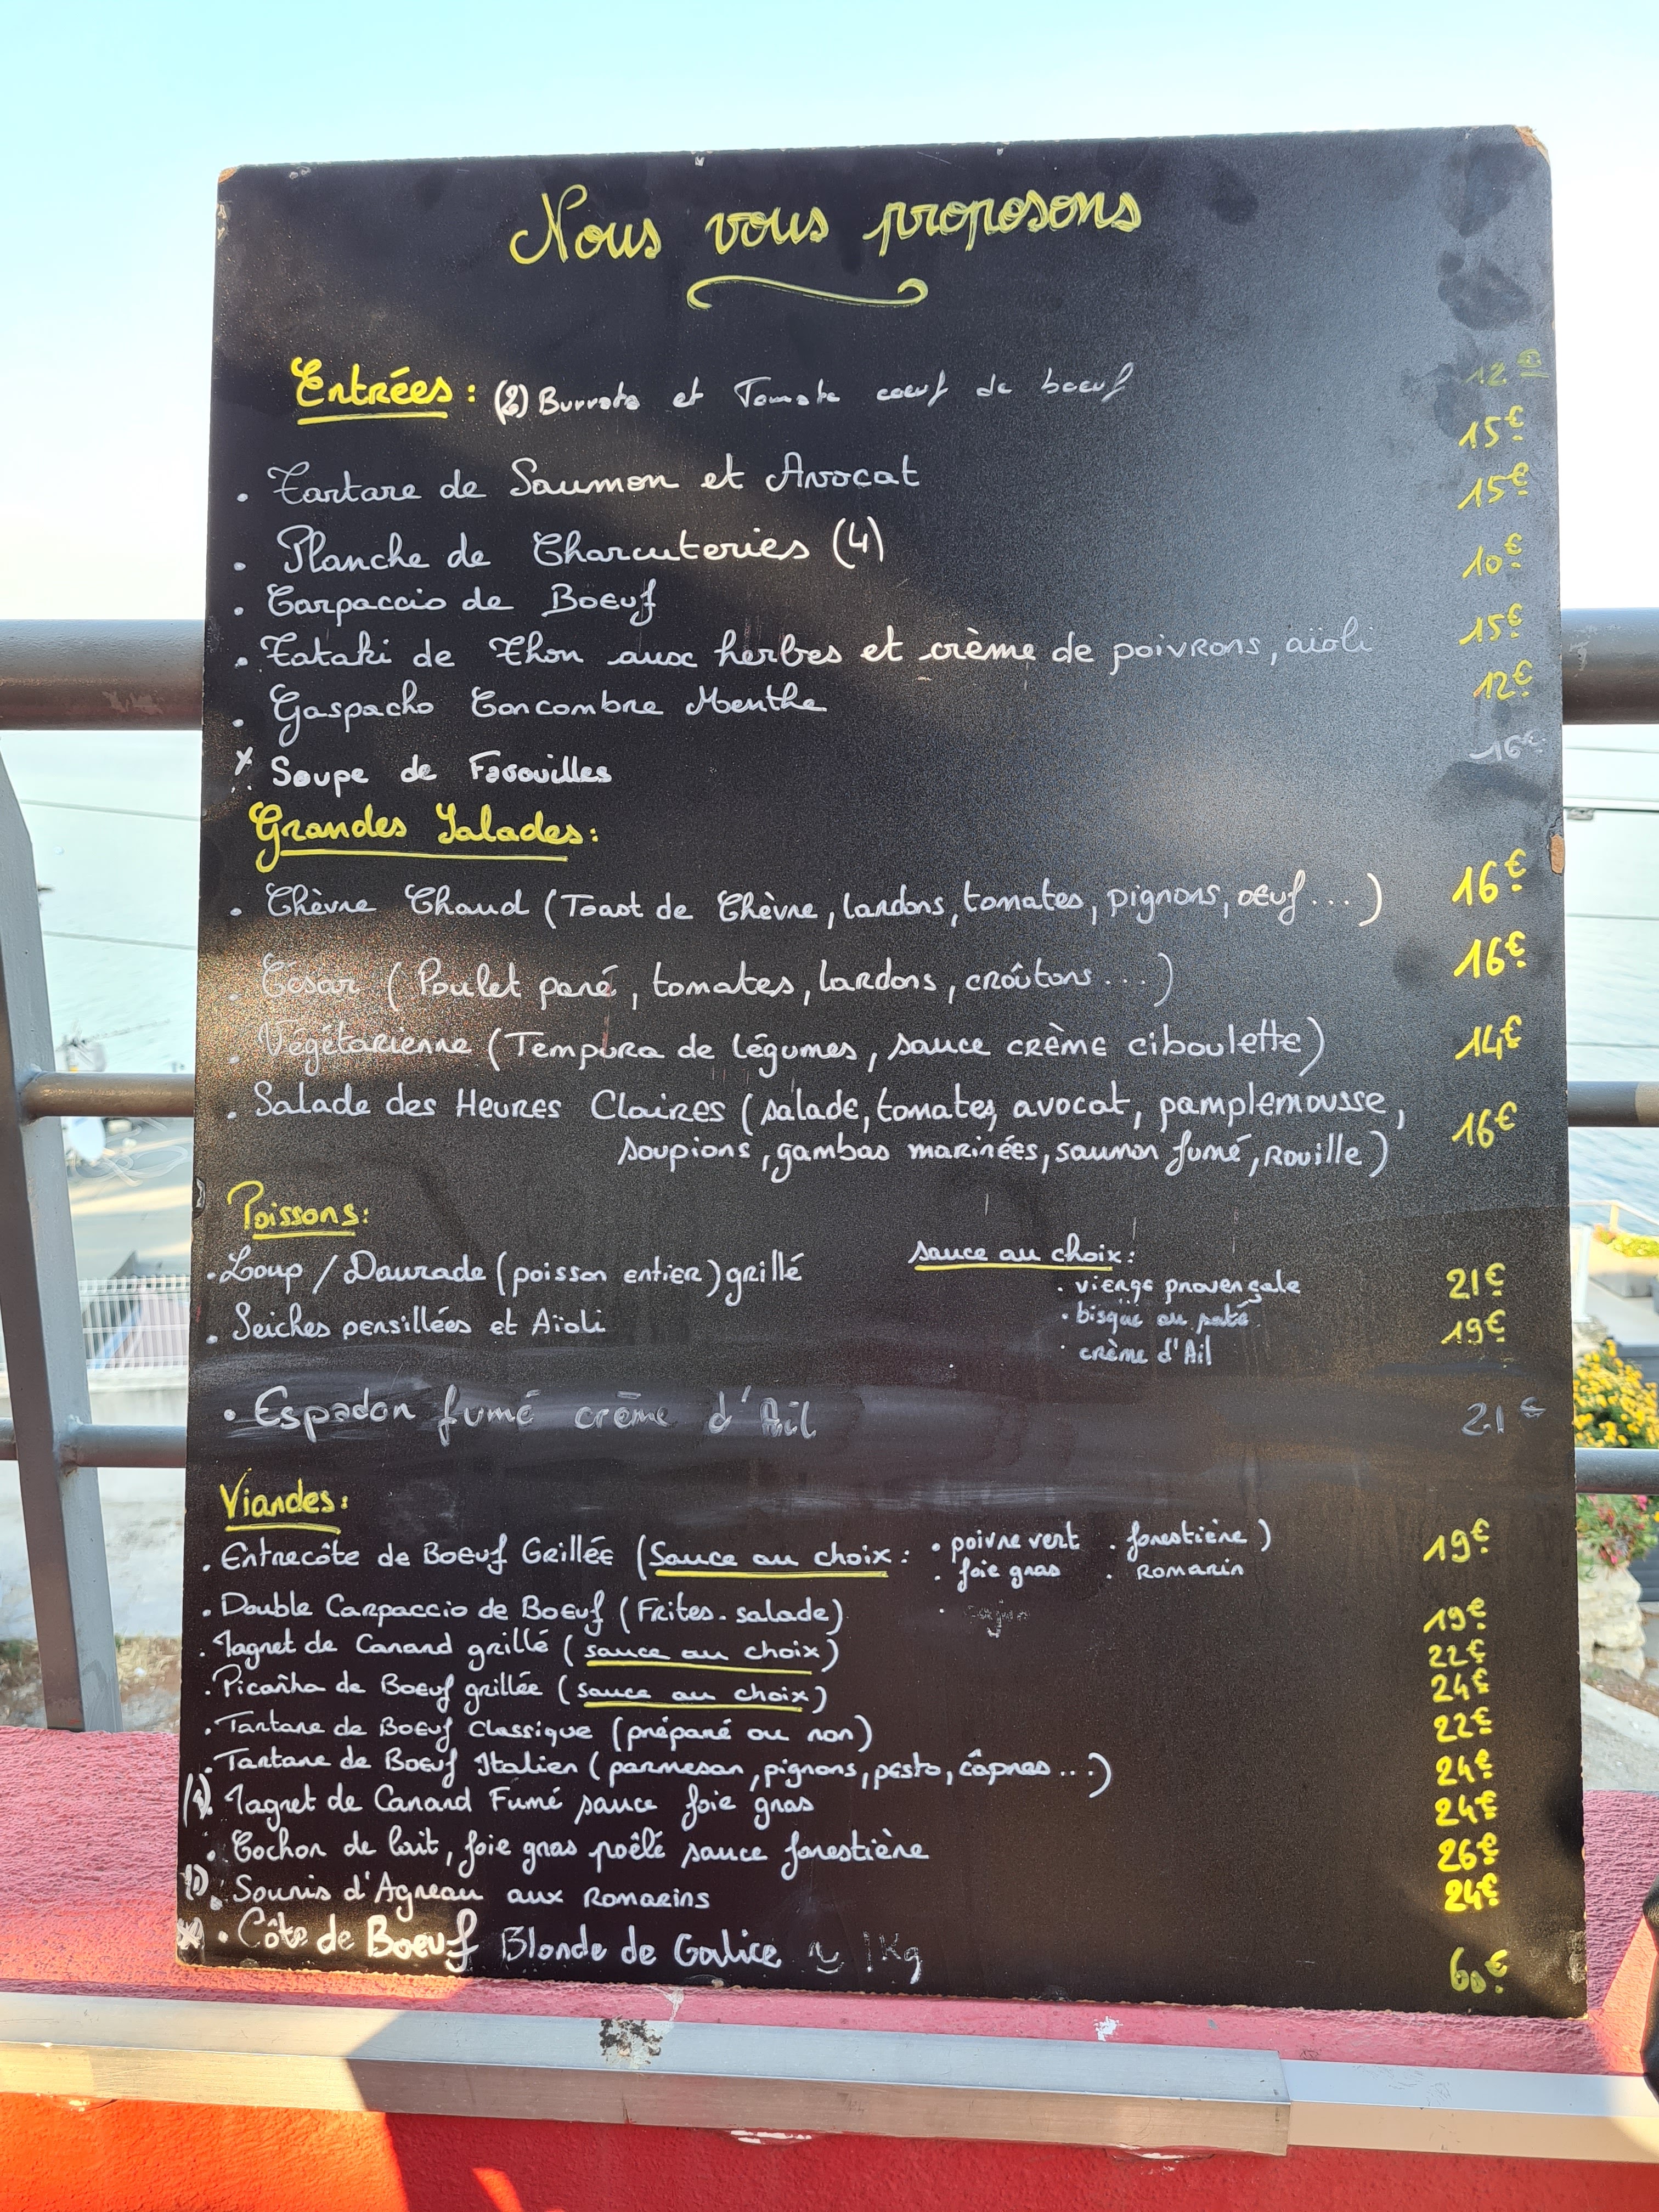 Nous vous proposons
Entrées : (2) Burrata et Tomate coeuf de boeuf 12€
. Tartare de Saumon et Avocat 15€
. Planche de Charcuteries (4) 15€
. Carpaccio de Boeuf 10€
. Tataki de Thon aux herbes et crème de poivrons, aïoli 15€
. Gaspacho Concombre Menthe 12€
. Soupe de Favouilles 16€
Grandes Salades :
. Chèvre Chaud (Toast de Chèvre, lardons, tomates, pignons, oeuf ...) 16€
. César (Poulet pané, tomates, lardons, croûtons ...) 16€
. Végétarienne (Tempura de légumes, sauce crème ciboulette) 14€
. Salade des Heures Claires (salade, tomates, avocat, pamplemousse, 16€
soupions, gambas marinées, saumon fumé, rouille)
Poissons :
. Loup / Daurade (poisson entier) grillé 21€
. Seiches pensillées et Aïoli 19€
sauce au choix :
. vierge provençale
. bisque au
. crème d'Ail
. Espadon fumé crème d'Ail 21€
Viandes :
. Entrecôte de Boeuf Grillée (Sauce au choix : . poivre vert . forestière) 19€
. foie gras . Romarin
. Double Carpaccio de Boeuf (Frites. salade) 19€
. Magret de Canard grillé (sauce au choix) 22€
. Picanha de Boeuf grillée (sauce au choix) 24€
. Tartare de Boeuf Classique (préparé ou non) 22€
. Tartare de Boeuf Italien (parmesan, pignons, pesto, câpres ...) 24€
. Magret de Canard Fumé sauce foie gras 24€
. Cochon de lait, foie gras poêlé sauce forestière 26€
. Souris d'Agneau aux Romarins 24€
. Côte de Boeuf Blonde de Galice ~ 1Kg 60€